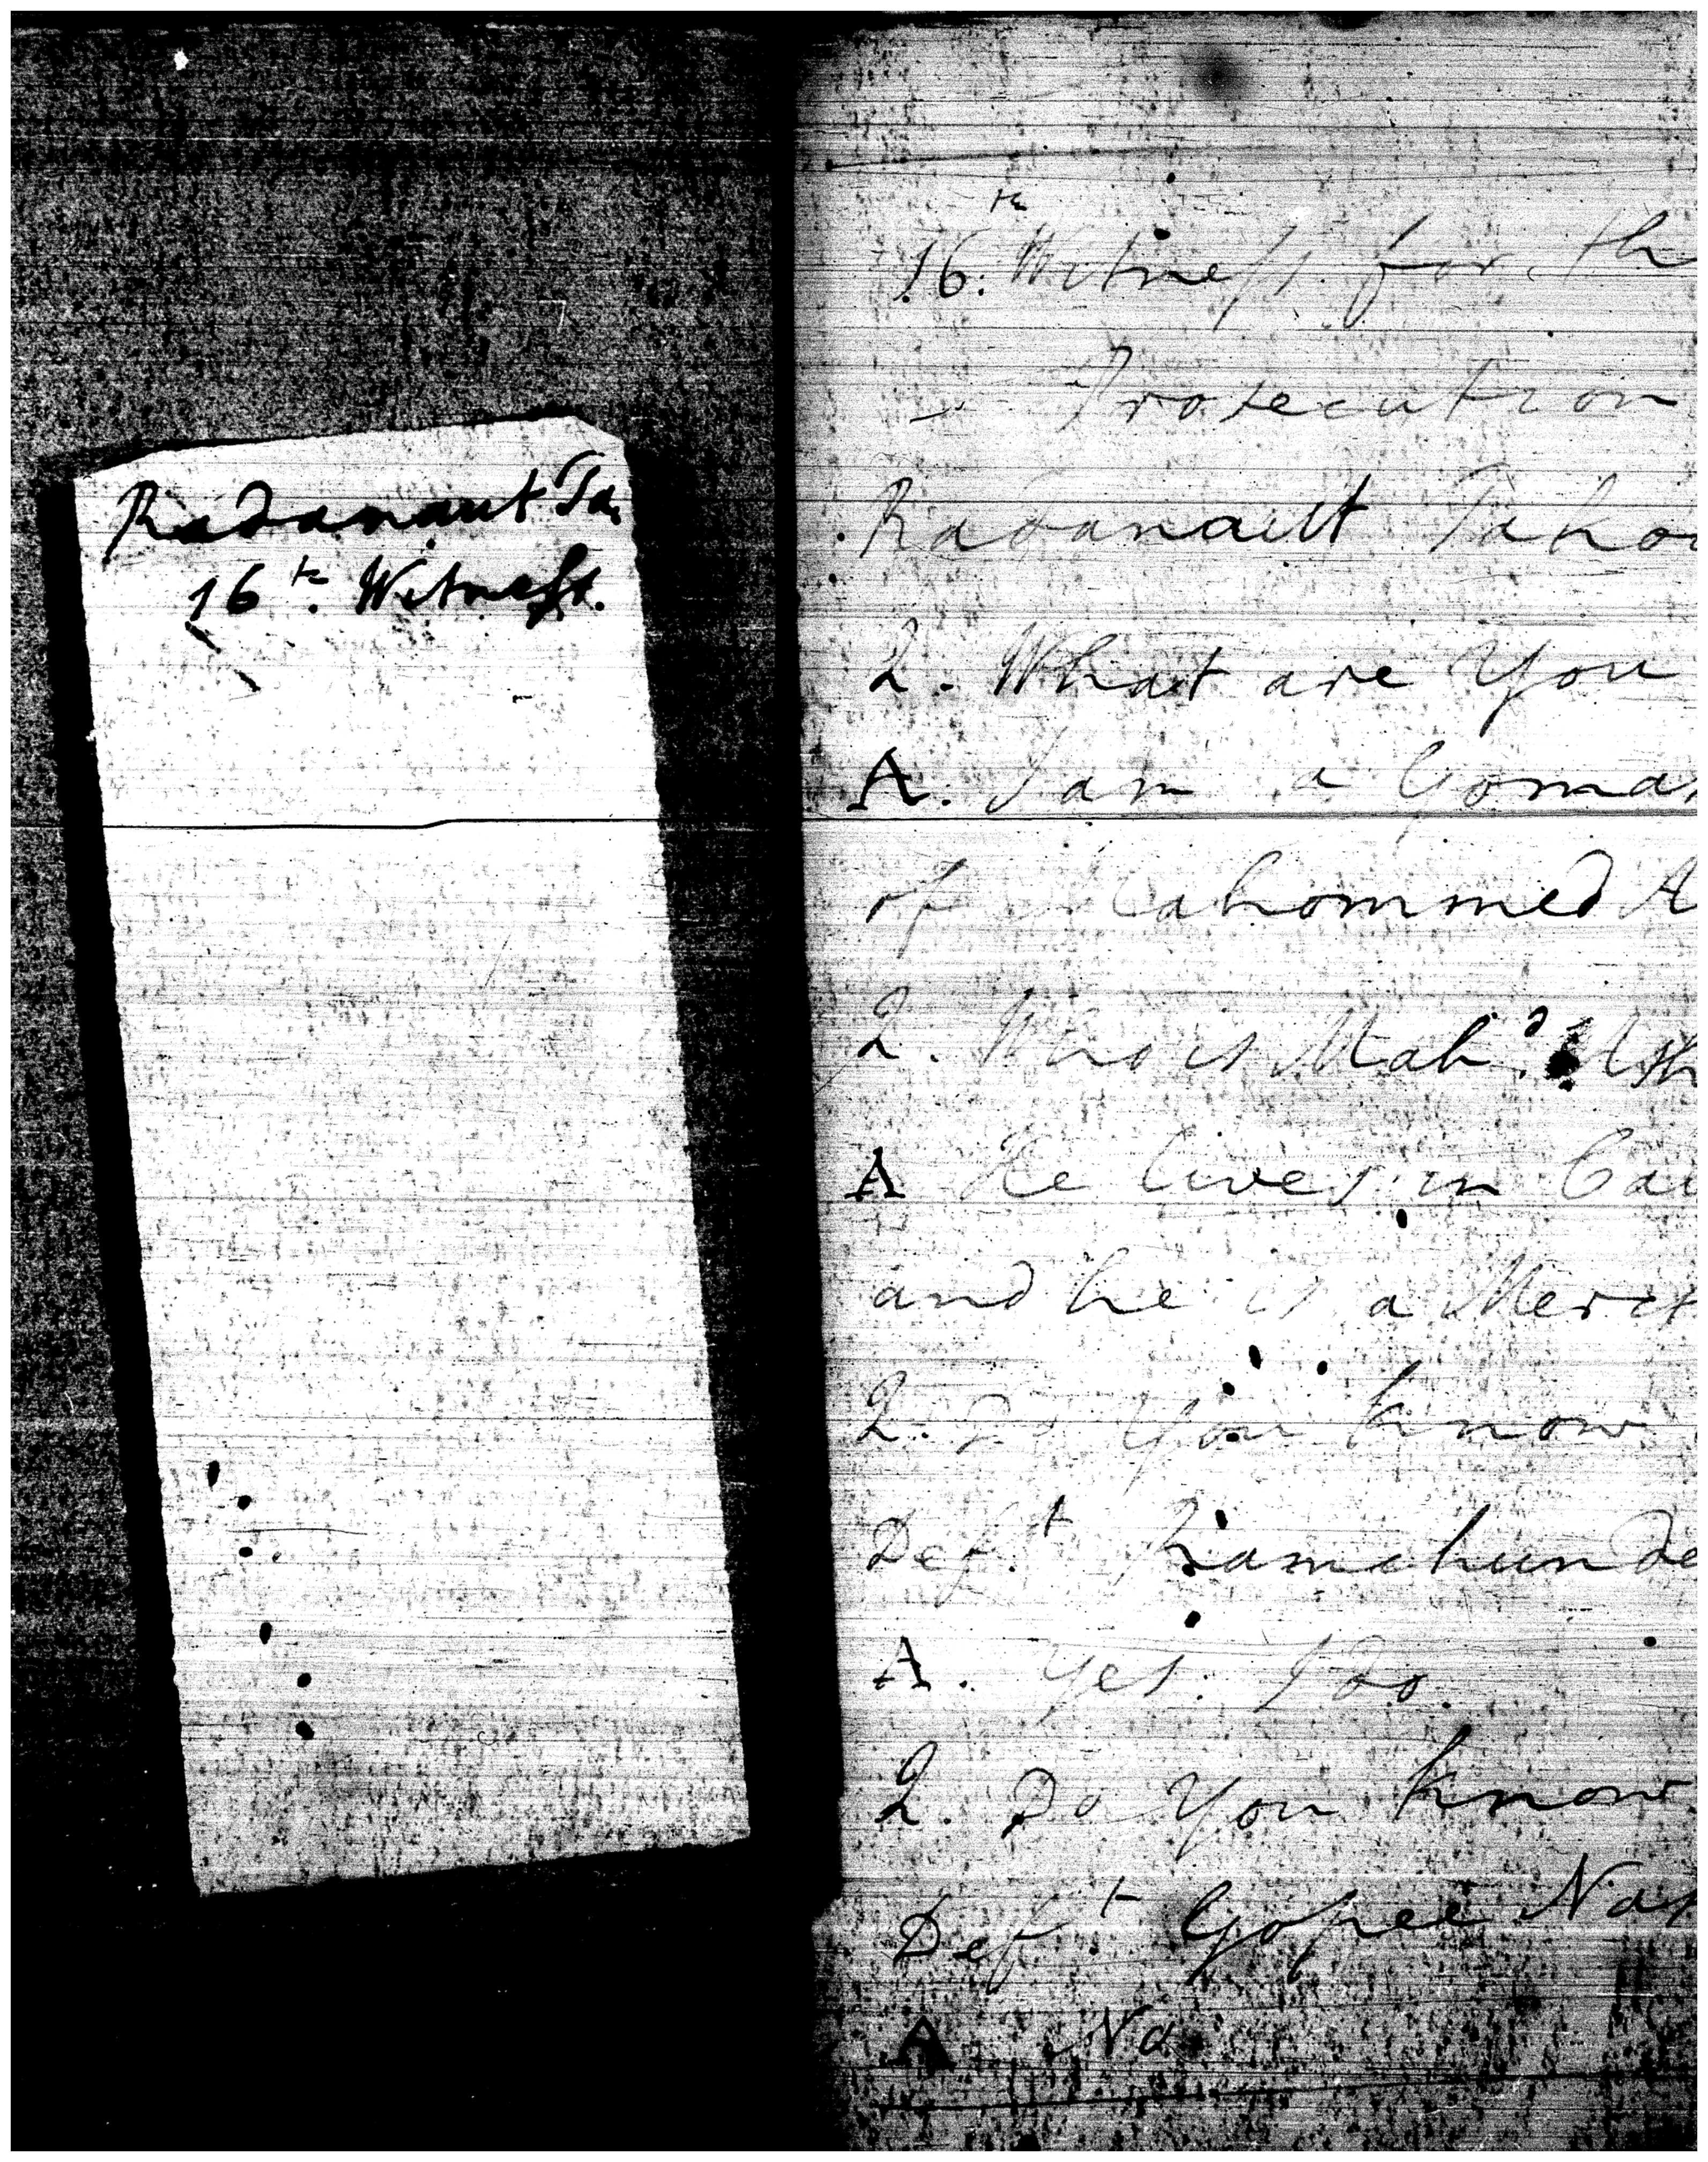 Radanaut Ta.
16th. Witness.
16th. Witness for th
Prosecution
Radanaut Takoo
Q. What are You
A. I am a Gomas
of Mahommed A
Q. Who is Mahd. Ush
A He lives in Cau
and he is a Merch
Q. Do You know
Deft. Ramchunde
A. Yes. I do.
Q. Do You know
Deft. Gopee Nay
A No